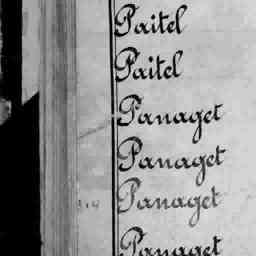 Paitel
Paitel
Panaget
Panaget
Panaget
Panaget